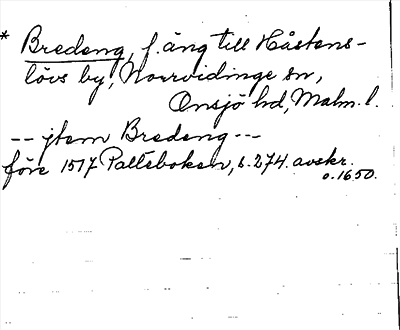 * Bredeng, f. äng till Håstens-
lövs by, Norrvidinge sn,
Onsjö hd, Malm. l.
-- jtem Bredeng ---
före 1517 Palteboken, s. 274. avskr.
o. 1650.